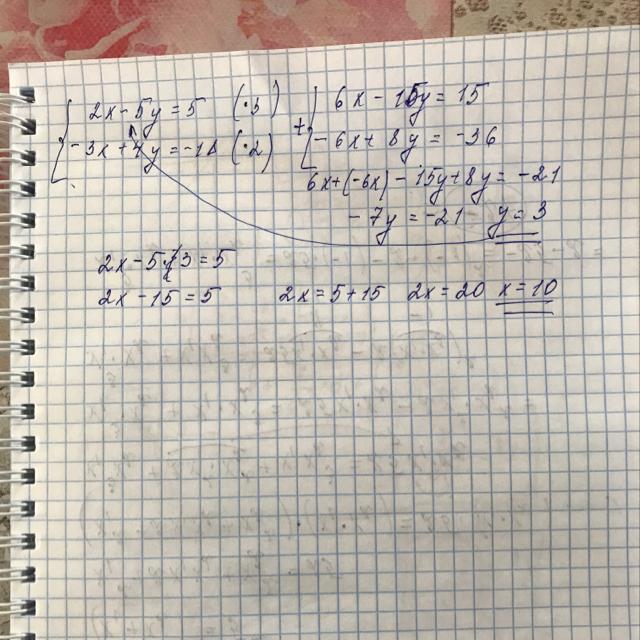 2x - 5y = 5 (·3) + 6x - 15y = 15
-3x + 4y = -18 (·2) -6x + 8y = -36
6x + (-6x) - 15y + 8y = -21
-7y = -21 y = 3
2x - 5·3 = 5
2x - 15 = 5 2x = 5 + 15 2x = 20 x = 10